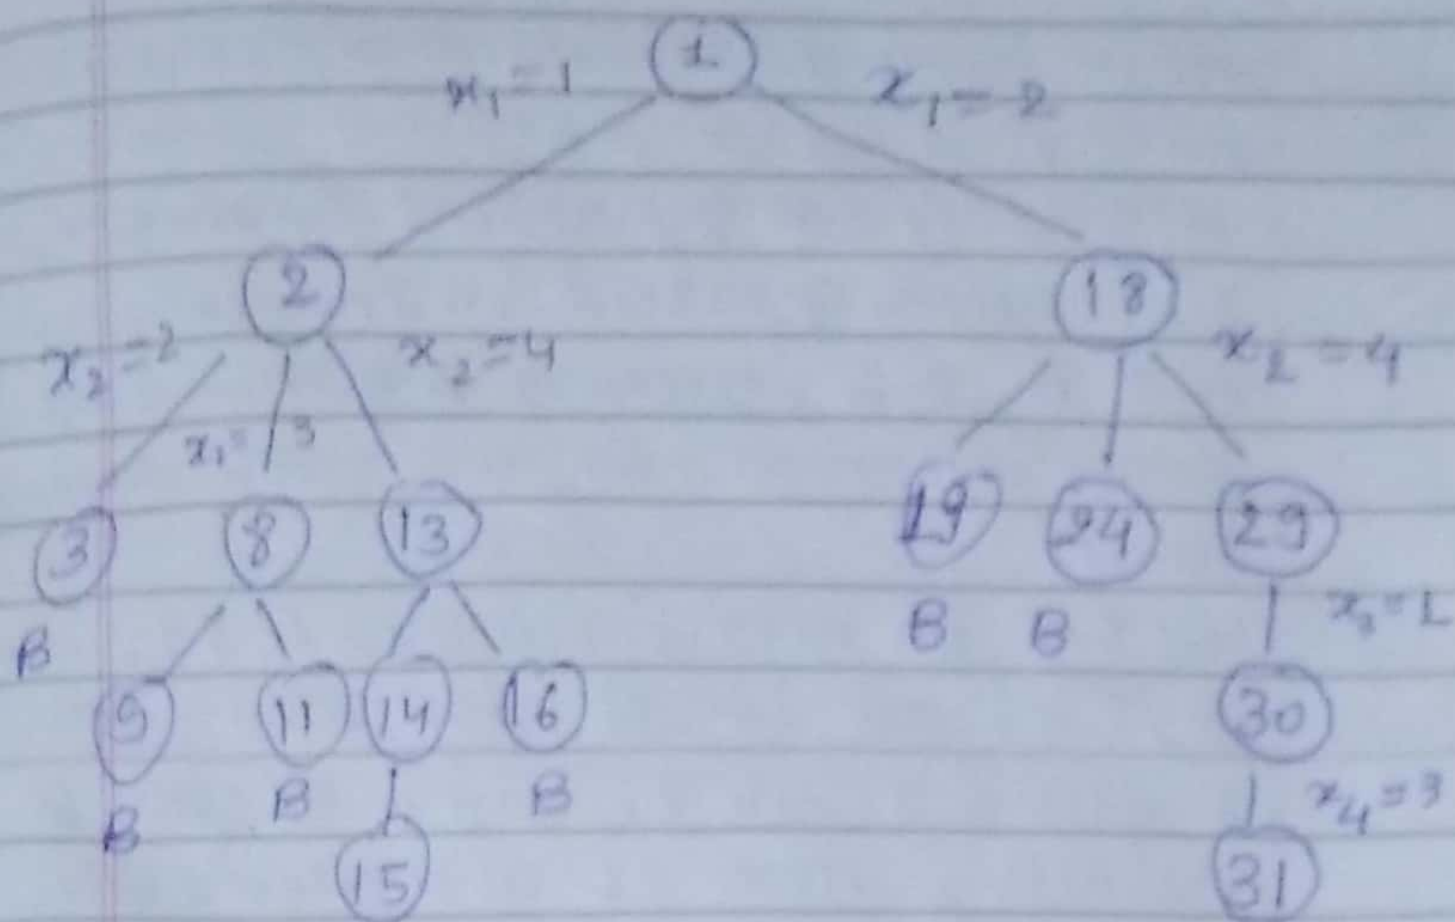 1
x₁ = 1 x₁ = 2
2 18
x₂ = 2 x₂ = 4 x₂ = 4
x₁ = 3
3 8 13 19 24 29
B B B x₃ = 1
9 11 14 16 30
B B B x₄ = 3
15 31